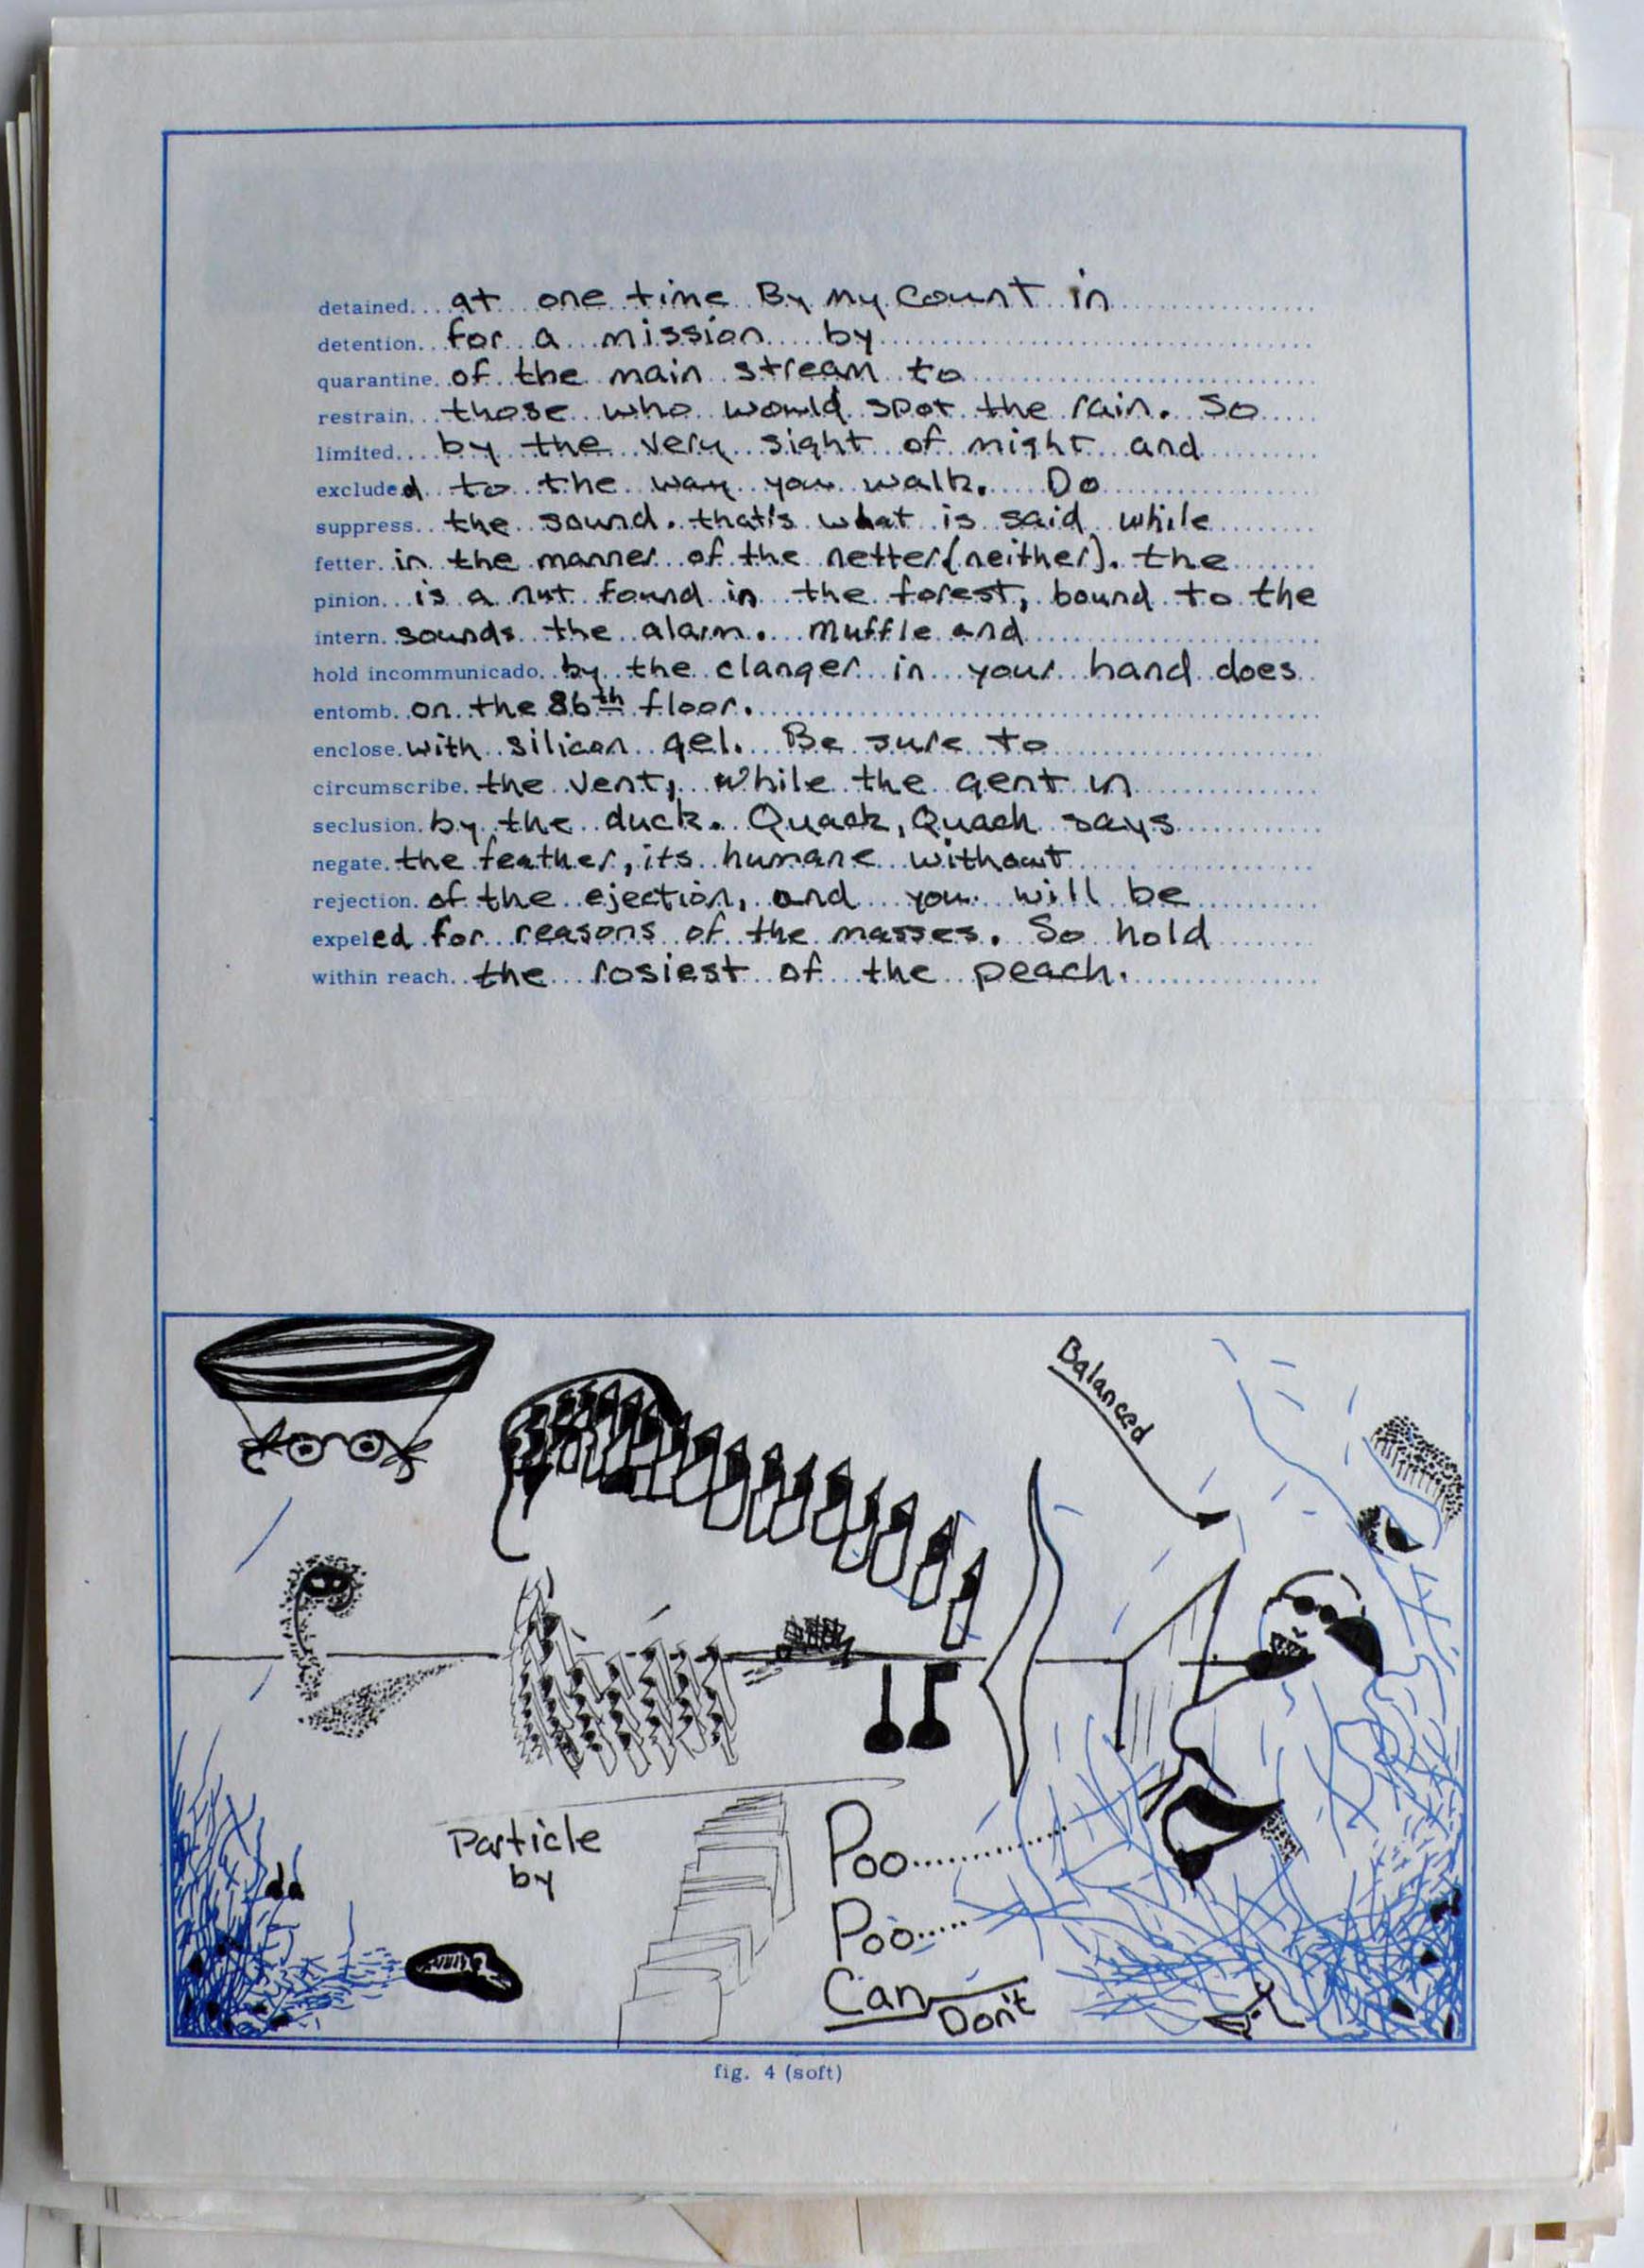 detained....at one time By my count in
detention...for a mission by
quarantine. of the main stream to
restrain...those who would spot the rain. So
limited....by the very sight of night and
excluded to the way you walk. Do
suppress..the sound. that's what is said while
fetter. in the manner of the netter(neither). the
pinion...is a nut found in the forest, bound to the
intern. sounds the alarm. muffle and
hold incommunicado. by the clanger in your hand does
entomb. on the 86th floor.
enclose. with silicon gel. Be sure to
circumscribe. the vent, while the gent in
seclusion. by the duck. Quack, Quack says
negate. the feather, its humane without
rejection. of the ejection, and you will be
expeled for reasons of the masses. So hold
within reach..the rosiest of the peach.
Balanced
Particle
by
Poo
Poo
Can Don't
fig. 4 (soft)